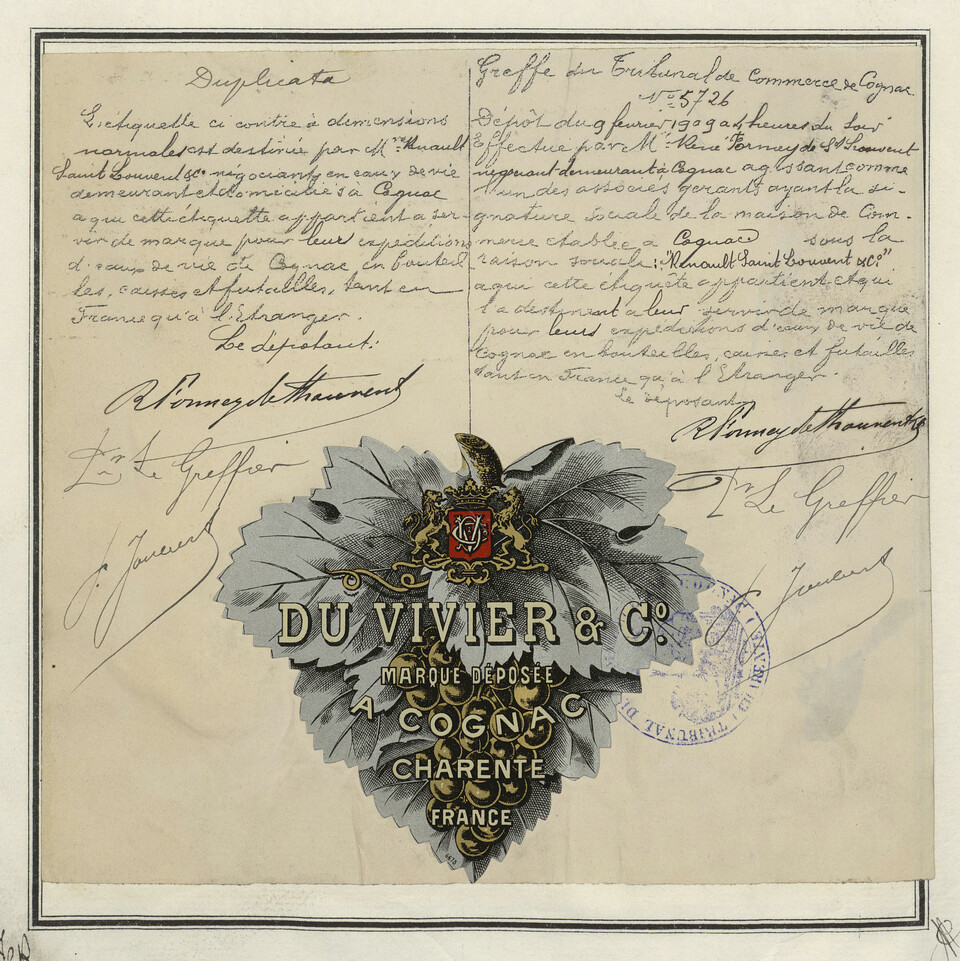 Duplicata
L'étiquette ci contre à dimensions
normales est destinée par Mrs Renault
Saint Louvent & Co négociants en eaux de vie
demeurant et domiciliés à Cognac
a qui cette étiquette appartient a ser-
vir de marque pour leurs expéditions
d'eaux de vie de Cognac en bouteil
les, caisses et futailles, tant en
France qu'à l'Etranger.
Le déposant:
Pr Le Greffier
Greffe du Tribunal de Commerce de Cognac
No 5726
Dépôt du 9 fevrier 1909 a 4 heures du soir
Effectué par Mr René Forney de St Louvent
négociant demeurant à Cognac agissant comme
l'un des associés gérants ayant la si-
gnature sociale de la maison de Com-
merce etablie a Cognac sous la
raison sociale: "Renault Saint Louvent & Co"
a qui cette étiquette appartient et qui
la destinent a leur servir de marque
pour leurs expéditions d'eaux de vie de
Cognac en bouteilles, caisses et futailles
tant en France qu'à l'Etranger.
Le déposant
Pr Le Greffier
DU VIVIER & Co.
MARQUE DÉPOSÉE
A COGNAC
CHARENTE
FRANCE
TRIBUNAL DE